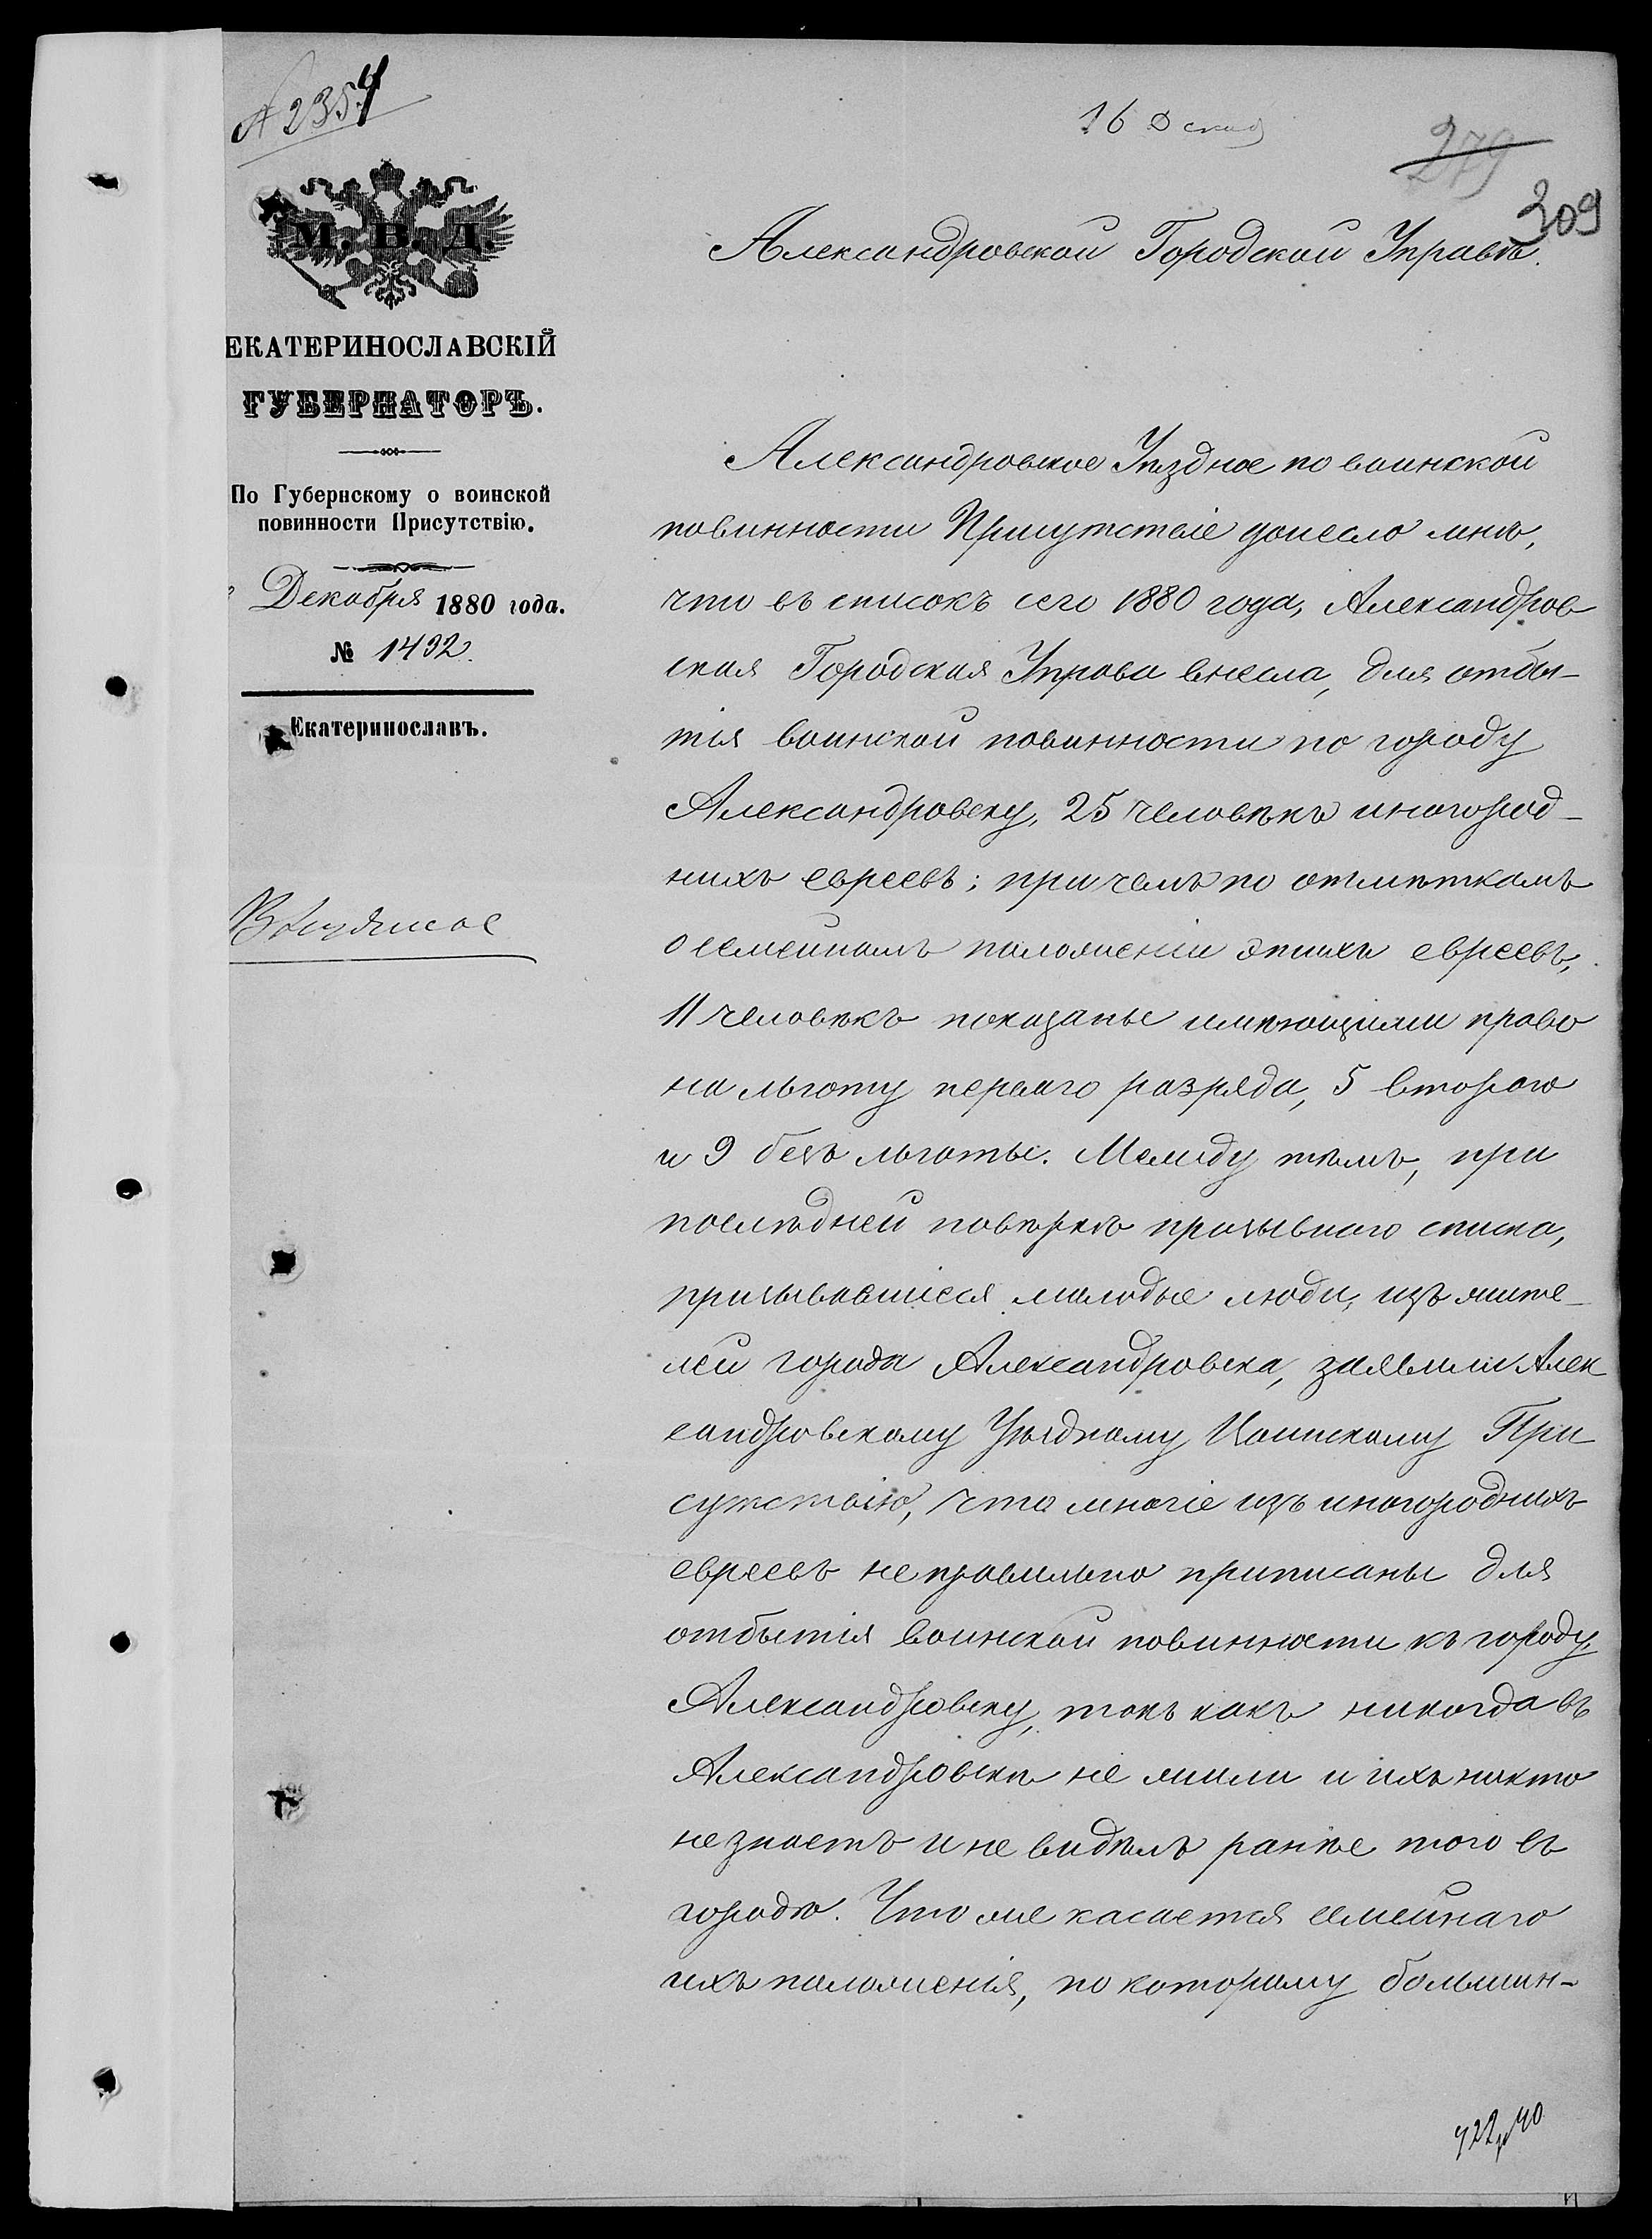 № 2354
16 Декаб
279
309
М. В. Д.
ЕКАТЕРИНОСЛАВСКІЙ
ГУБЕРНАТОРЪ.
По Губернскому о воинской
повинности Присутствію.
Декабря 1880 года.
№ 1492.
Екатеринославъ.
Александровской Городской Управѣ.
Александровское Уѣздное по воинской
повинности Присутствіе донесло мнѣ,
что въ списокъ сего 1880 года, Александров
ская Городская Управа внесла, для отбы-
тія воинской повинности по городу
Александровску, 25 человѣкъ иногород-
нихъ евреевъ; при чемъ по отмѣткамъ
о семейномъ положеніи этихъ евреевъ,
11 человѣкъ показаны имѣющими право
на льготу перваго разряда, 5 второго
и 9 безъ льготы. Между тѣмъ, при
послѣдней повѣркѣ призывнаго списка,
призывавшіеся молодые люди, изъ жите-
лей города Александровска, заявили Алек
сандровскому Уѣздному Воинскому При
сутствію, что многіе изъ иногороднихъ
евреевъ неправильно приписаны для
отбытія воинской повинности къ городу
Александровску, такъ какъ никогда въ
Александровскѣ не жили и ихъ никто
не знаетъ и не видѣлъ ранѣе того въ
городѣ. Что же касается семейнаго
ихъ положенія, по которому большин-